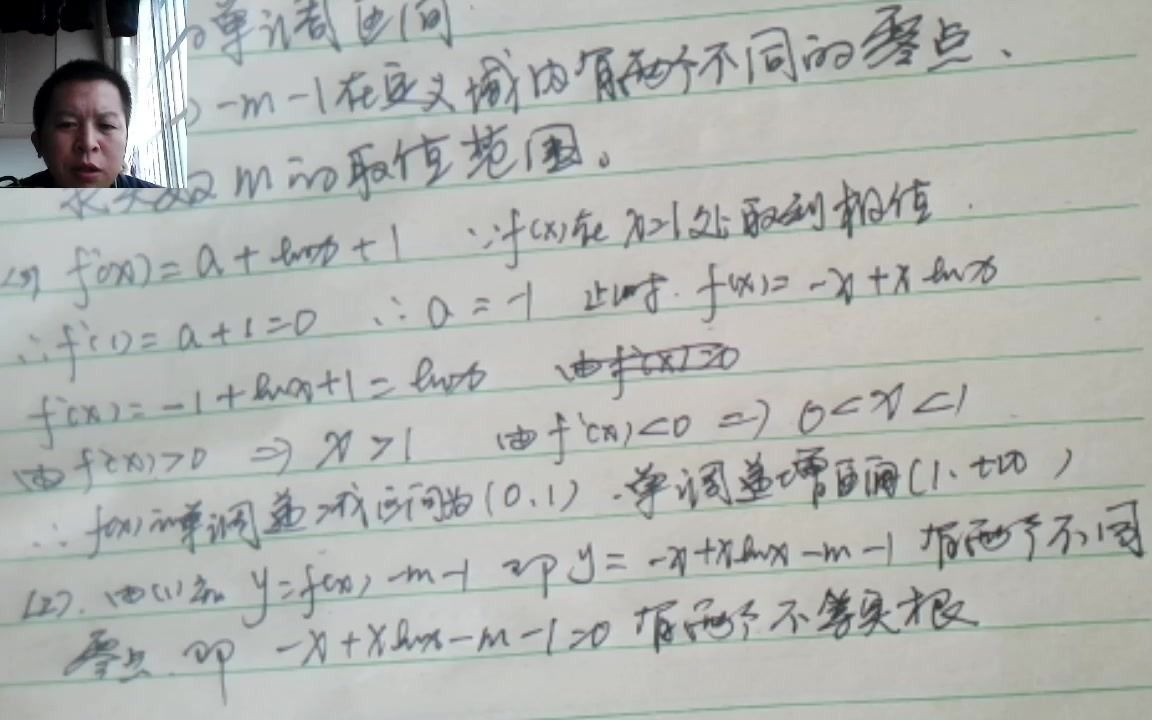 单调区间
-m-1在定义域内有两个不同的零点、
求实数m的取值范围。
f'(x)=a+lnx+1 ∵f(x)在x=1处取到极值.
∴f'(1)=a+1=0 ∴a=-1 此时.f(x)=-x+xlnx
f'(x)=-1+lnx+1=lnx 由f'(x)=0
由f'(x)>0 ⇒ x>1 由f'(x)<0 ⇒ 0<x<1
∴f(x)的单调递减区间为(0,1).单调递增区间(1,+∞)
(2).由(1)知 y=f(x)-m-1 即y=-x+xlnx-m-1 有两个不同
零点.即 -x+xlnx-m-1=0 有两个不等实根